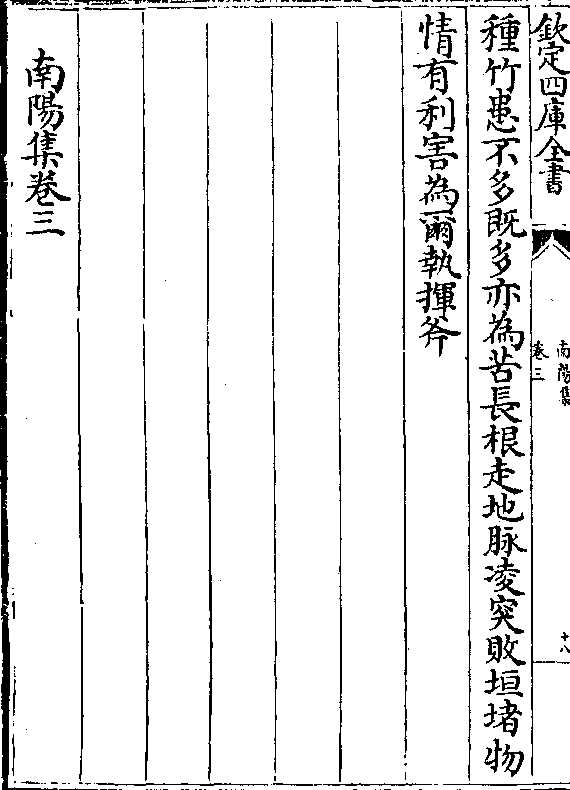 欽定四庫全書
南陽集
卷三
十八
種竹患不多既多亦為苦長根走地脈凌突敗垣堵物
情有利害為爾執揮斧
南陽集卷三